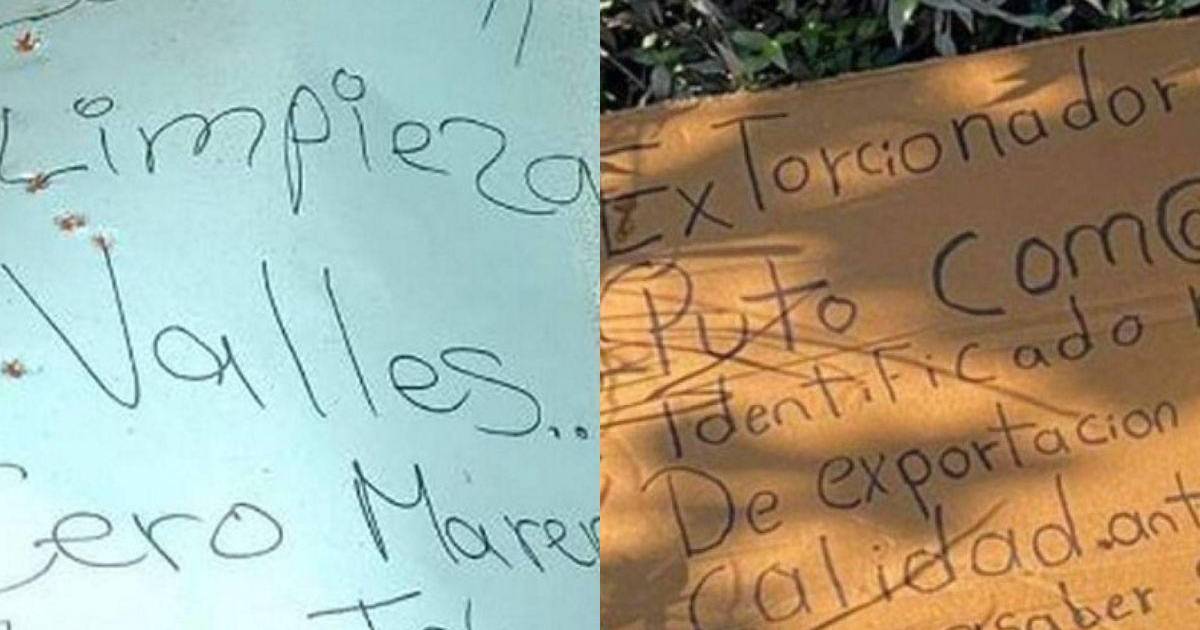 Limpieza
Valles...
Cero
ExTorcionador
Puto Com@
Identificado
De exportacion
Calidad.ant
saber